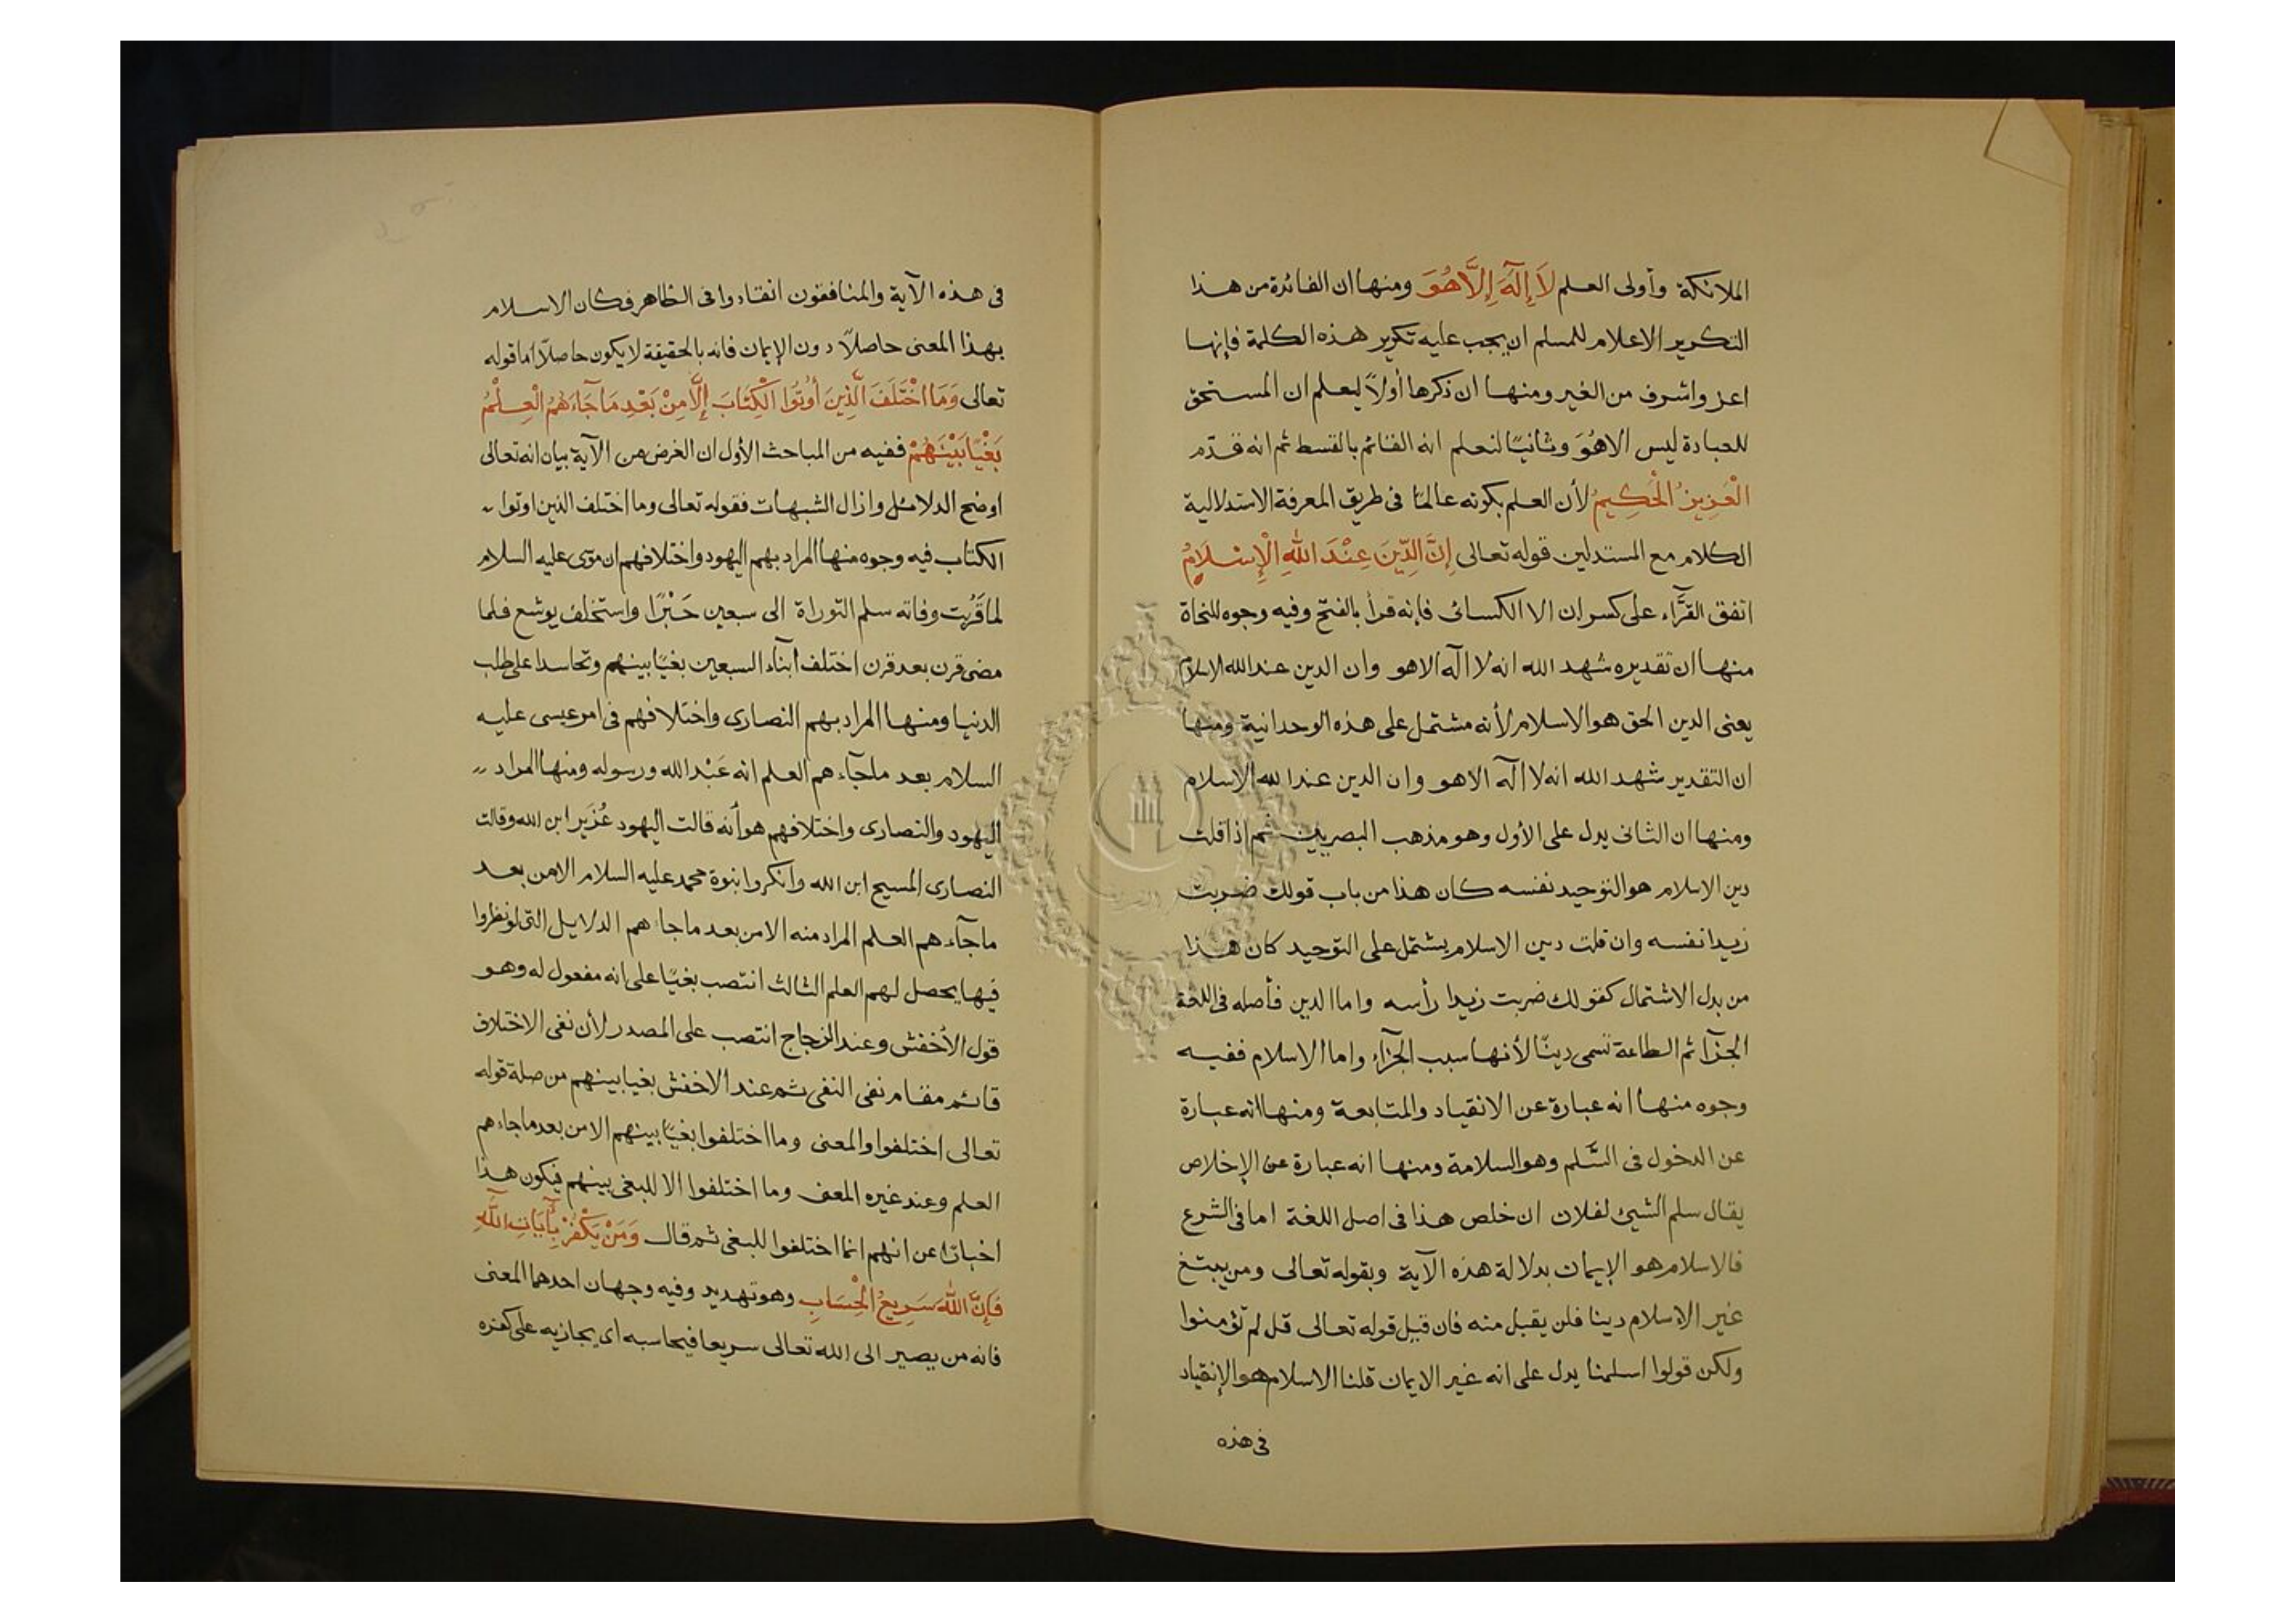 الملائكة وأولى العلم لَا إِلَهَ إِلَّا هُوَ ومنها ان الفائدة من هذا
التكرير الاعلام للمسلم ان يجب عليه تكرير هذه الكلمة فإنها
اعز واشرف من الغير ومنها ان ذكرها أولاً ليعلم ان المستحق
للعبادة ليس الا هُوَ وثانيًا لنعلم انه القائم بالقسط ثم انه قدّم
الْعَزِيزُ الْحَكِيمُ لأن العلم بكونه عالمًا فى طريق المعرفة الاستدلالية
الكلام مع المستدلين قوله تعالى إِنَّ الدِّينَ عِنْدَ اللهِ الْإِسْلَامُ
اتفق القرَّاء على كسر ان الا الكسائى فإنه قرأ بالفتح وفيه وجوه للنحاة
منها ان تقديره شهد الله انه لا اله الا هو وان الدين عند الله الاسلام
يعنى الدين الحق هو الاسلام لأنه مشتمل على هذه الوحدانية ومنها
ان التقدير شهد الله انه لا اله الا هو وان الدين عند الله الاسلام
ومنها ان الثانى يدل على الأول وهو مذهب البصريين ثم اذا قلت
دين الاسلام هو التوحيد نفسه كان هذا من باب قولك ضربت
زيدا نفسه وان قلت دين الاسلام يشتمل على التوحيد كان هذا
من بدل الاشتمال كقولك ضربت زيدا رأسه واما الدين فأصله فى اللغة
الجزآ ثم الطاعة تسمى دينًا لأنها سبب الجزآء واما الاسلام ففيه
وجوه منها انه عبارة عن الانقياد والمتابعة ومنها انه عبارة
عن الدخول فى السّلم وهو السلامة ومنها انه عبارة عن الإخلاص
يقال سلم الشيئ لفلان ان خلص هذا فى اصل اللغة اما فى الشرع
فالاسلام هو الإيمان بدلالة هذه الآية وبقوله تعالى ومن يبتغ
غير الاسلام دينا فلن يقبل منه فان قيل قوله تعالى قل لم تؤمنوا
ولكن قولوا اسلمنا يدل على انه غير الايمان قلنا الاسلام هو الإنقياد
فى هذه
فى هذه الآية والمنافقون انقادوا فى الظاهر فكان الاسلام
بهذا المعنى حاصلاً دون الإيمان فانه بالحقيقة لا يكون حاصلاً اما قوله
تعالى وَمَا اخْتَلَفَ الَّذِينَ أُوتُوا الْكِتَابَ إِلَّا مِنْ بَعْدِ مَا جَآءَهُمُ الْعِلْمُ
بَغْيًا بَيْنَهُمْ ففيه من المباحث الأول ان الغرض من الآية بيان انه تعالى
اوضح الدلائل وازال الشبهات فقوله تعالى وما اختلف الذين اوتوا
الكتاب فيه وجوه منها المراد بهم اليهود واختلافهم ان موسى عليه السلام
لما قَرُبت وفاته سلم التوراة الى سبعين حَبْرًا واستخلف يوشع فلما
مضى قرن بعد قرن اختلف أبنآء السبعين بغيًا بينهم وتحاسدا على طلب
الدنيا ومنها المراد بهم النصارى واختلافهم فى امر عيسى عليه
السلام بعد ما جآءهم العلم انه عَبْد الله ورسوله ومنها المراد
اليهود والنصارى واختلافهم هو أنه قالت اليهود عُزَير ابن الله وقالت
النصارى المسيح ابن الله وانكروا نبوة محمد عليه السلام الا من بعد
ما جآءهم العلم المراد منه الا من بعد ما جاءهم الدلايل التى لو نظروا
فيها يحصل لهم العلم الثالث انتصب بغيًا على انه مفعول له وهو
قول الأخفش وعند الزجاج انتصب على المصدر لأن نفى الاختلاف
قائم مقام نفى النفى ثم عند الاخفش بغيا بينهم من صلة قوله
تعالى اختلفوا والمعنى وما اختلفوا بغيًا بينهم الا من بعد ما جاءهم
العلم وعند غيره المعنى وما اختلفوا الا للبغى بينهم فيكون هذا
اخبارًا عن انهم انما اختلفوا للبغى ثم قال وَمَنْ يَكْفُرْ بِآيَاتِ اللَّهِ
فَإِنَّ اللهَ سَرِيعُ الْحِسَابِ وهو تهديد وفيه وجهان احدهما المعنى
فانه من يصير الى الله تعالى سريعا فيحاسبه اى يجازيه على كفره